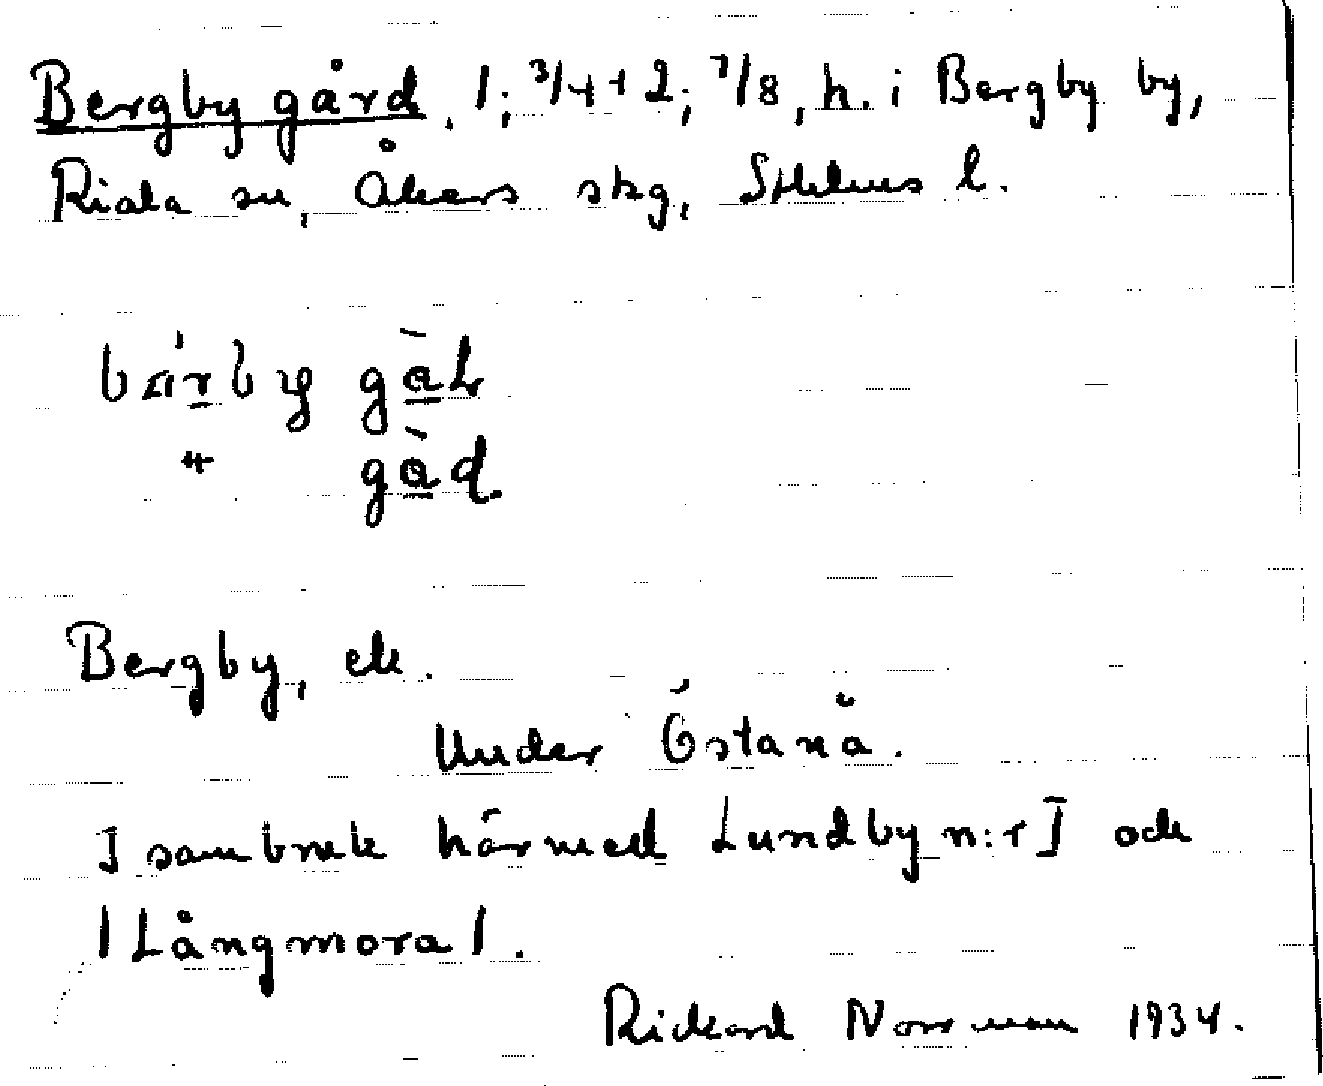 Bergby gård. 1; 3/4 + 2; 7/8, h. i Bergby by,
Riala sn, Åkers skg, Sthlms l.
bärby gàḷ
" gàḍ
Bergby, ek.
Under Östanå.
I sambruk härmed Lundby n:r I och
|Långmora|.
Rickard Norrman 1934.